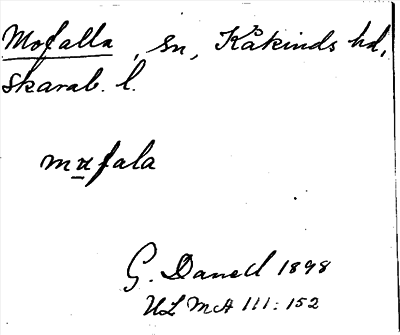 Mofalla, sn, Kåkinds hd,
Skarab. l.
mufala
G. Danell 1898
ULMA 111:152